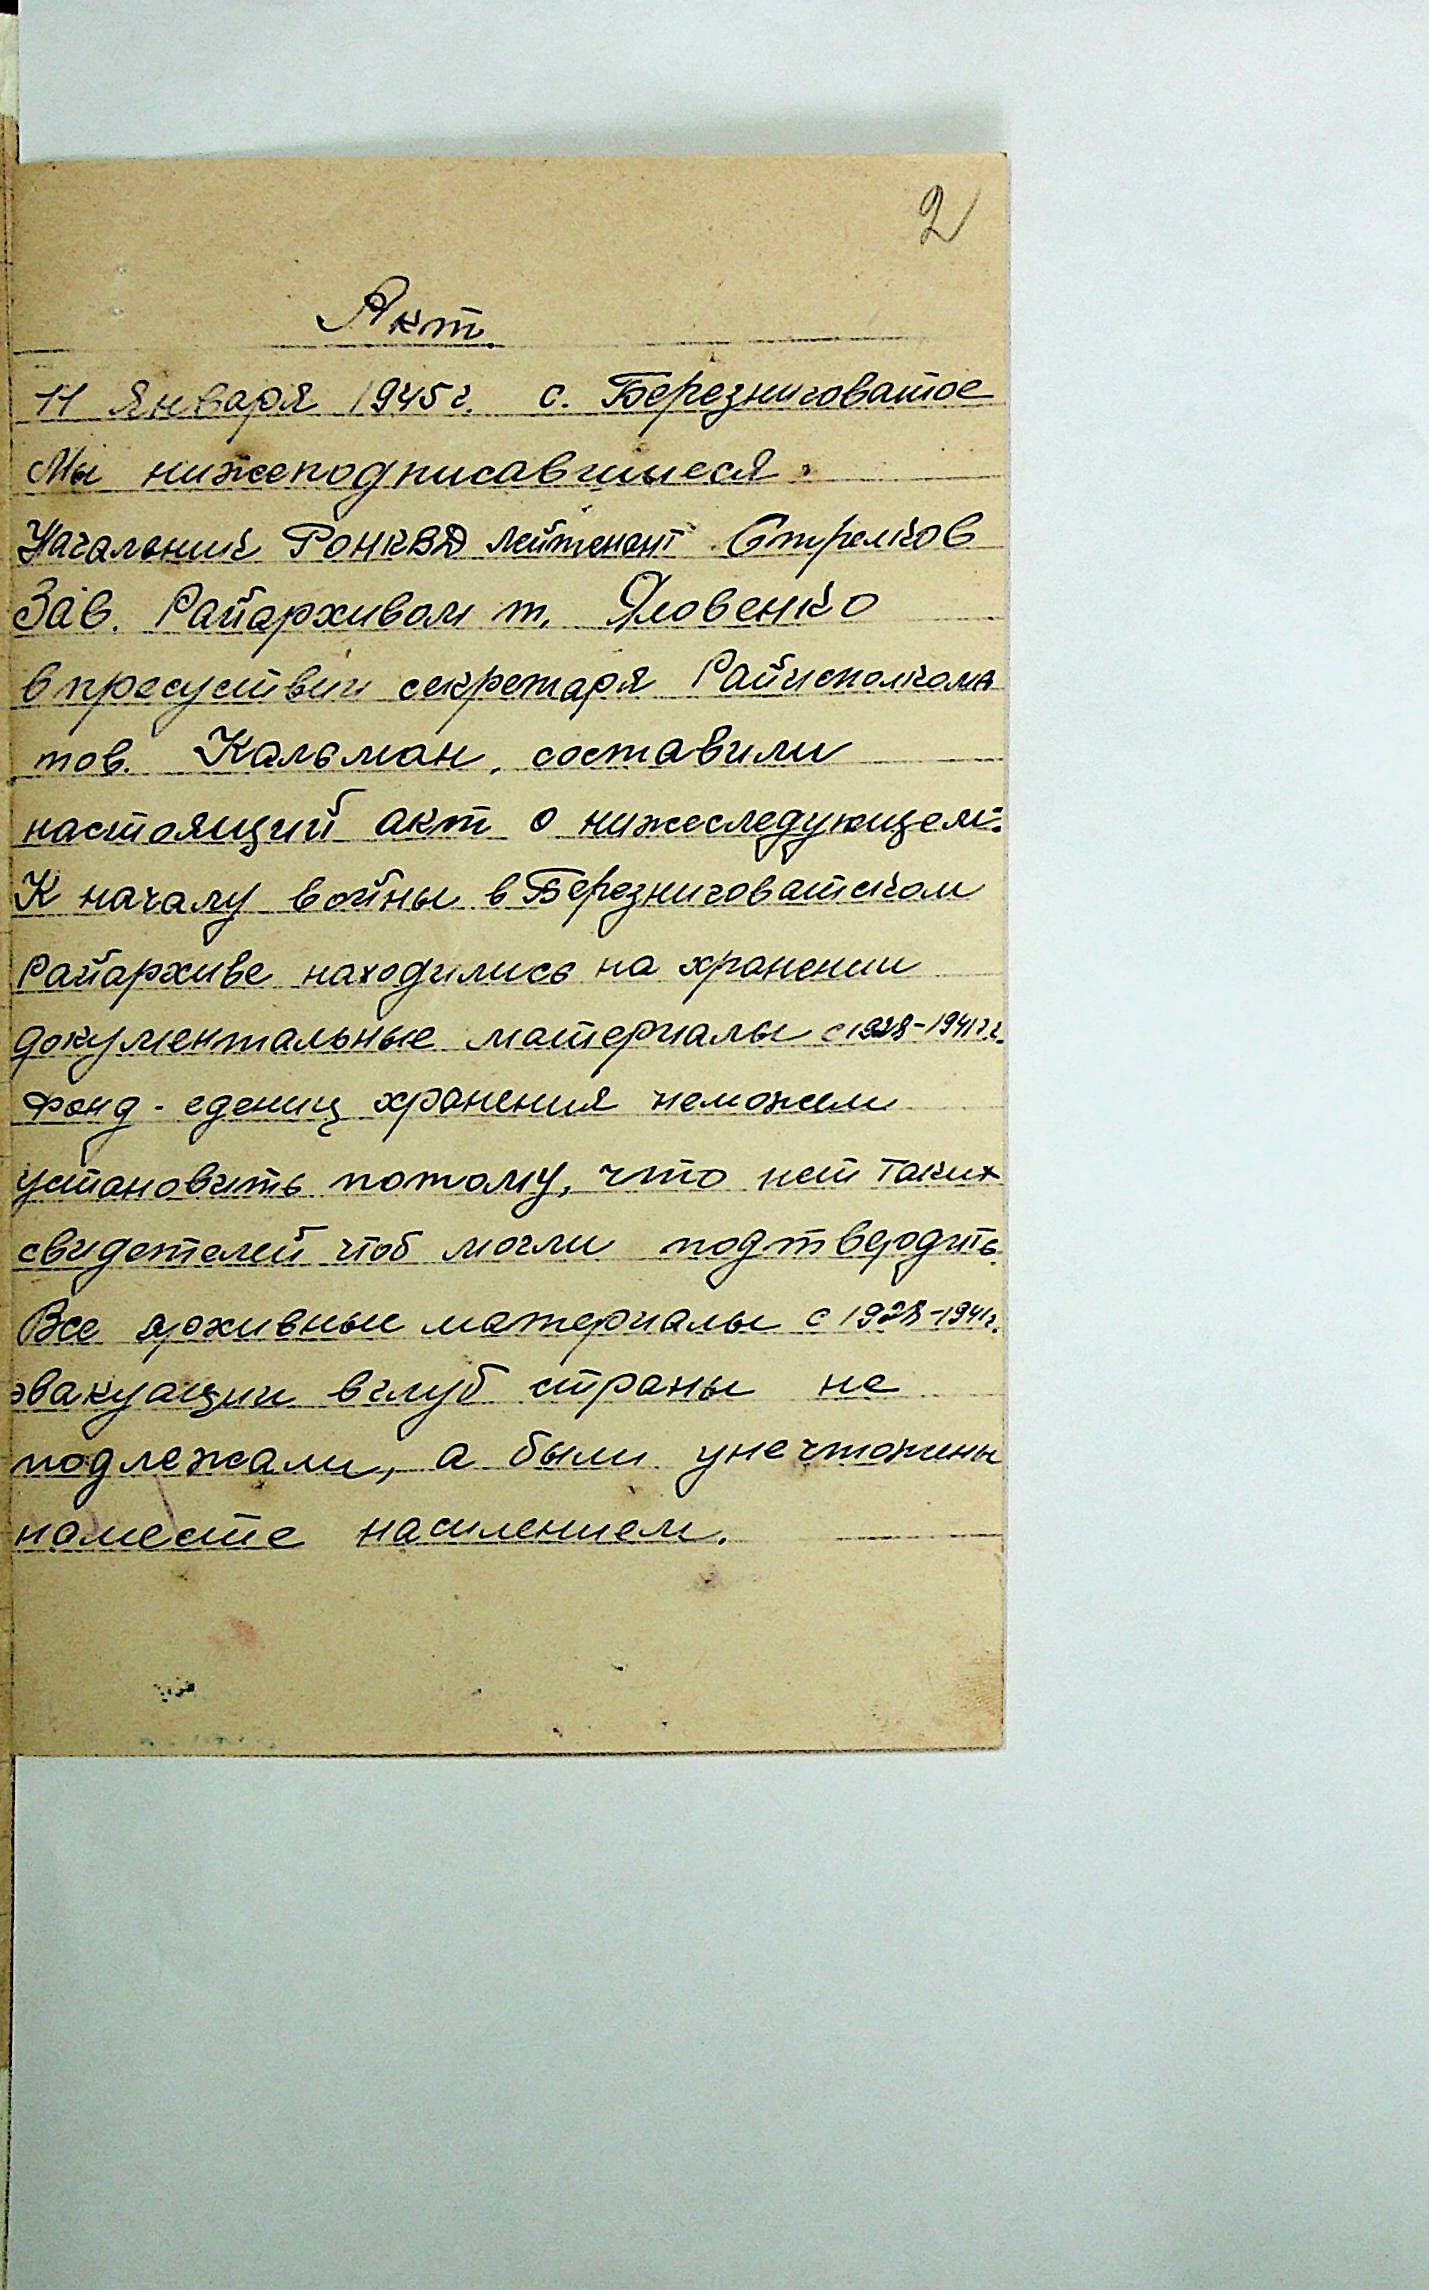 2
Акт.
11 Января 1945 г. с. Березниговатое
Мы нижеподписавшиеся
Начальник РОНКВД лейтенант Стрелков
Зав. Райархивом т. Яловенко
в пресуствии секретаря Райисполкома
тов. Кальман, составили
настоящий акт о нижеследующем:
К началу войны в Березниговатском
Райархиве находились на хранении
документальные материалы с 1928-1941 г.г.
Фонд-едениц хранения неможем
установить потому, что нет таких
свидетелей чтоб могли подтвердить.
Все архивные материалы с 1928-1941г.
эвакуации вглуб страны не
подлежали, а были унечтожены
наместе насилением.